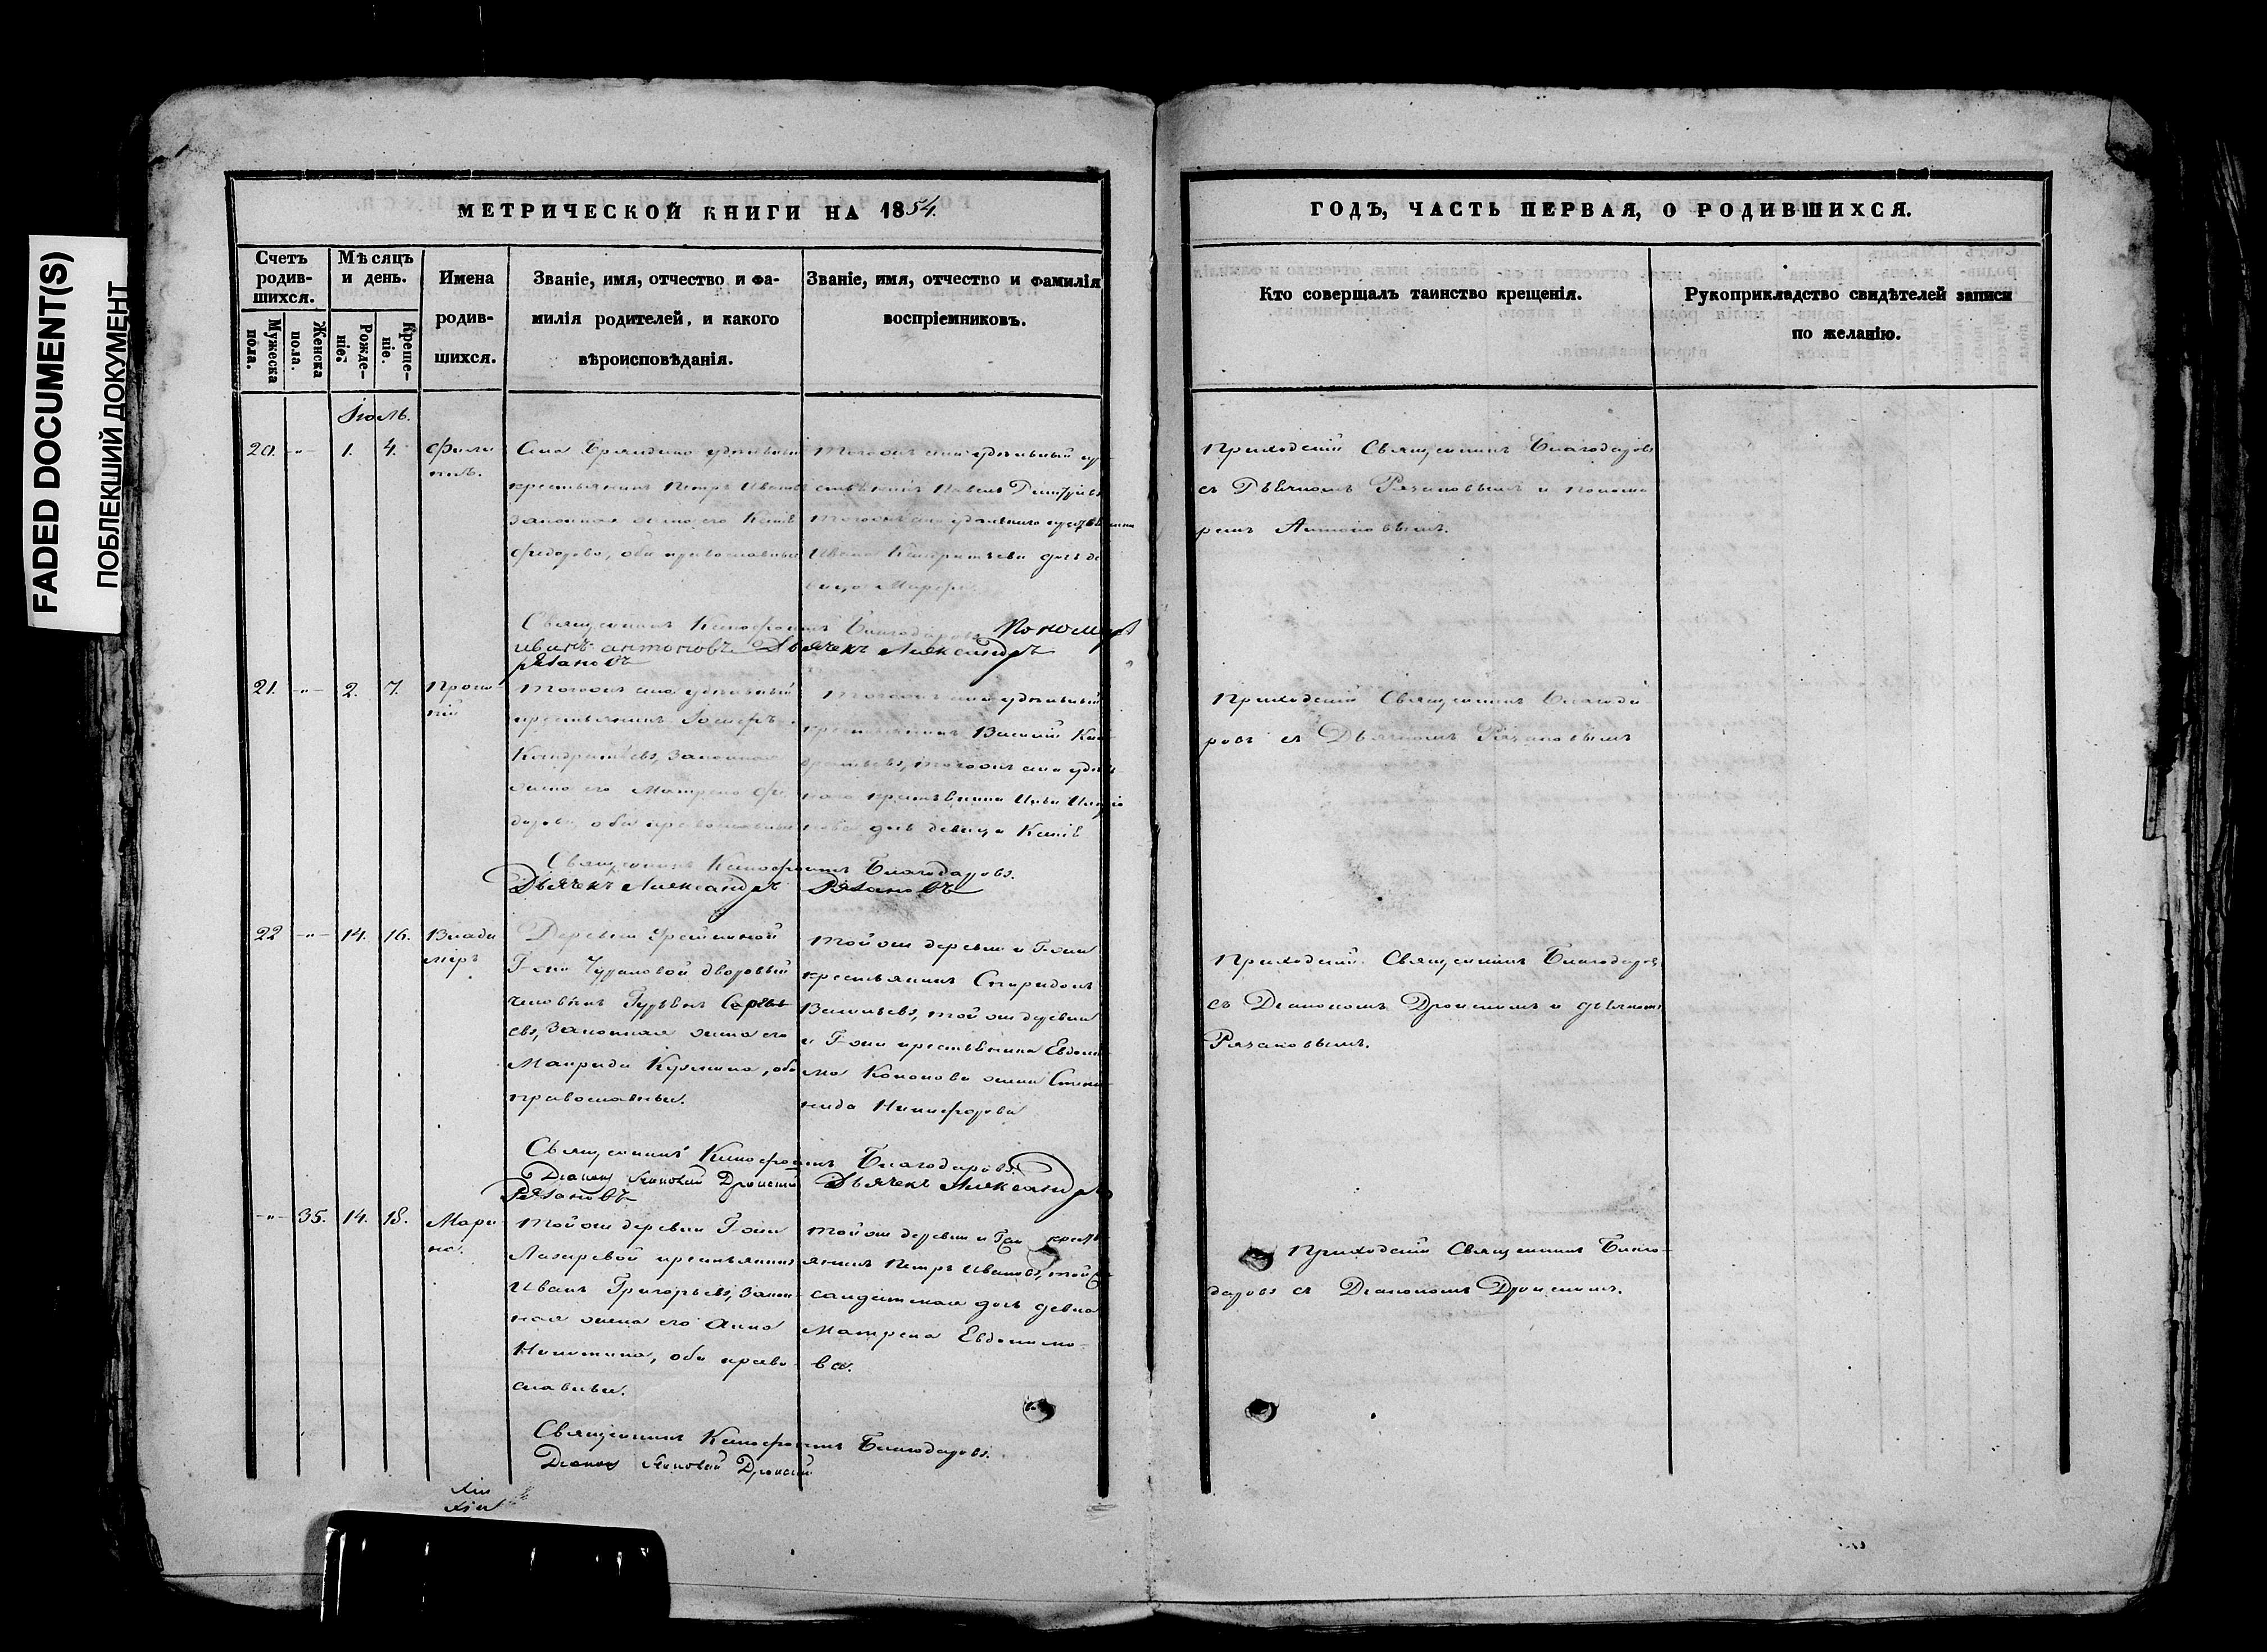 FADED DOCUMENT(S)
ПОБЛЕКШИЙ ДОКУМЕНТ
МЕТРИЧЕСКОЙ КНИГИ НА 1854.
Счетъ родив-шихся.
Мужеска пола.
Женска пола.
Мѣсяцъ и день.
Рожде-ніе.
Креще-ніе.
Имена
родив-
шихся.
Званіе, имя, отчество и фа-
милія родителей, и какого
вѣроисповѣданія.
Званіе, имя, отчество и фамилія
воспріемниковъ.
Іюль.
20. -"- 1. 4. Фили
ппъ.
Села удѣльный
крестьянинъ Петръ Ивановъ
законная жена его Ксенія
Федорова, оба православные
Тогоже села удѣльный кре
стьянинъ Павелъ Дмитріевъ
тогоже села удѣльнаго
Ивана Кондратьева дочь де
вица Марфа
Священникъ Ксенофонтъ Благодаровъ Пономарь
иванъ антоновъ Дьячекъ Александръ
Рязановъ
21. -"- 2. 7. Проко
пій
Тогоже села удѣльный
крестьянинъ
Кондратьевъ, законная
жена его Матрена Фе
дорова, оба православные
Тогоже села удѣльный
крестьянинъ Василій Кон
дратьевъ, тогоже села удѣль
наго крестьянина Ильи
дочь девица Ксенія
Священникъ Ксенофонтъ Благодаровъ.
Дьячекъ Александръ Рязановъ
22 -"- 14. 16. Влади
міръ
Деревни
Г-жи дворовый
человѣкъ Сергѣ
евъ, законная жена его
Кузмина, оба
православные.
Той же деревни и Г-жи
крестьянинъ Спиридонъ
Васильевъ, той же деревни
и Г-жи крестьянина Евдоки
ма Кононова жена Степа
нида Никифорова
Священникъ Ксенофонтъ Благодаровъ.
Діаконъ Дронскій Дьячекъ Александръ
Рязановъ
-"- 35. 14. 18. Мари
на.
Той же деревни Г-жи
Лазаревой крестьянинъ
Иванъ Григорьевъ, закон
ная жена его Анна
Никитина, оба право
славные.
Той же деревни и Г-жи крест
янинъ Петръ Ивановъ, той же
салдатская дочь девка
Матрена Евдокимо
ва.
Священникъ Ксенофонтъ Благодаровъ.
Діаконъ Дронскій
ГОДЪ, ЧАСТЬ ПЕРВАЯ, О РОДИВШИХСЯ.
Кто совершалъ таинство крещенія.
Рукоприкладство свидѣтелей записи
по желанію.
Приходскій Священникъ Благодаровъ
съ Дьячкомъ Рязановымъ и понома
ремъ Антоновымъ.
Приходскій Священникъ Благода
ровъ съ Дьячкомъ Рязановымъ
Приходскій Священникъ Благодаровъ
съ Діакономъ Дронскимъ и дьячкомъ
Рязановымъ.
Приходскій Священникъ Благо
даровъ съ Діакономъ Дронскимъ.